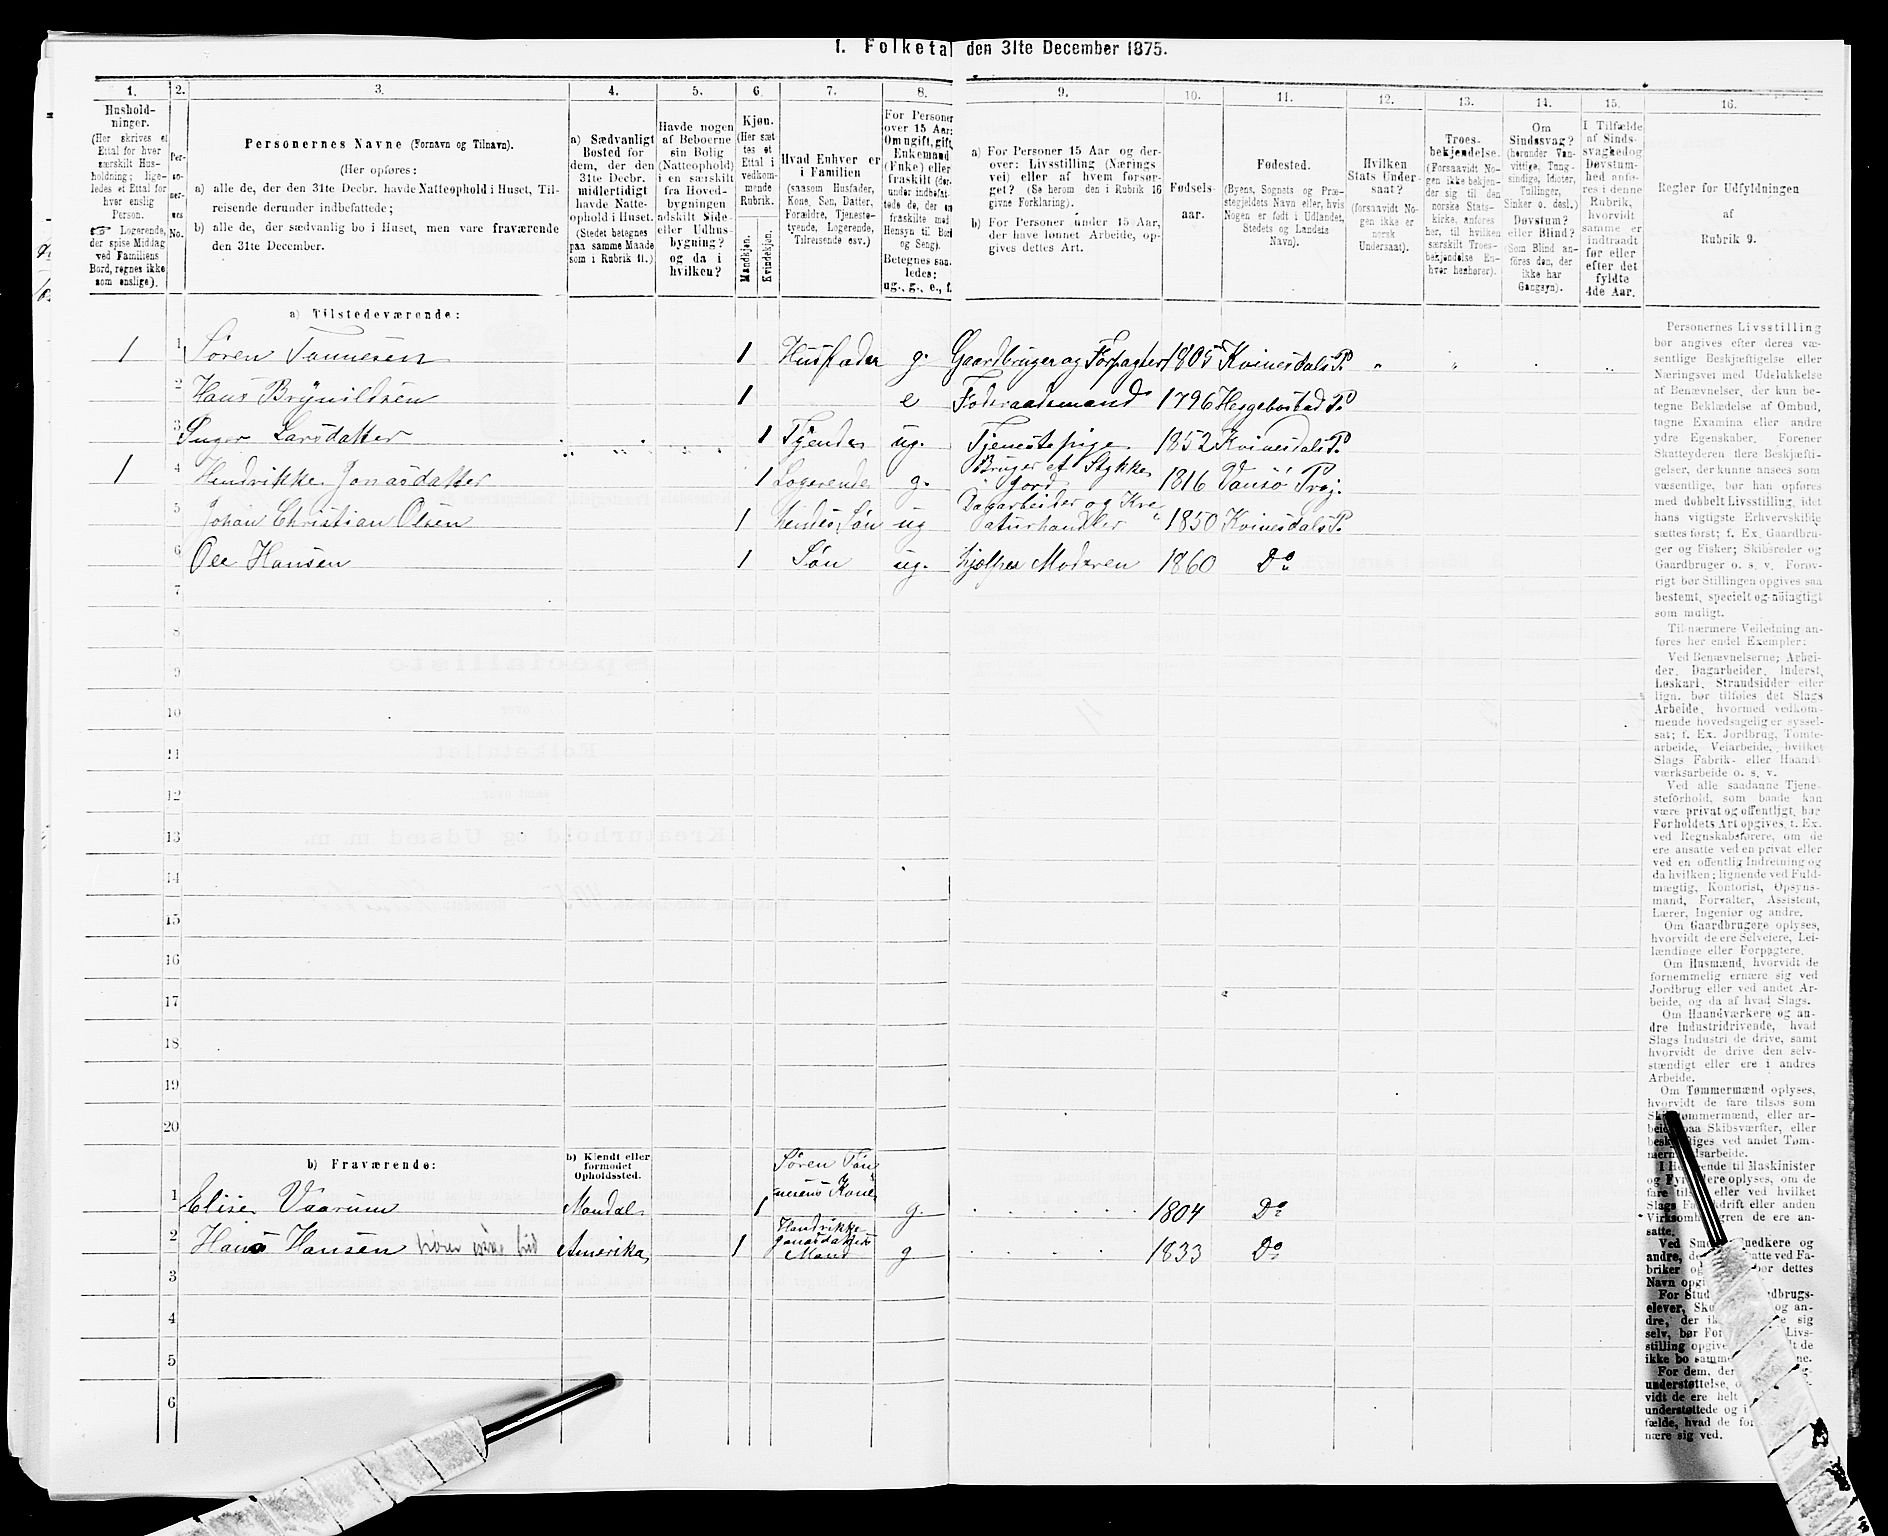 1. Folketal den 31te December 1875.
1. 2. 3. 4. 5. 6. 7. 8. 9. 10. 11. 12. 13. 14. 15. 16.
Hushold-
ninger.
(Her skrives et
Ettal for hver
særskilt Hus-
holdning; lige-
ledes et Ettal for
hver enslig
Person.
Logerende,
der spise Middag
ved Familiens
Bord, regnes ikke
som enslige).
Per-
so-
ner-
nes
No.
Personernes Navne (Fornavn og Tilnavn).
(Her opføres:
a) alle de, der den 31te Decbr. havde Natteophold i Huset, Til-
reisende derunder indbefattede;
b) alle de, der sædvanlig bo i Huset, men vare fraværende
den 31te December.
a) Sædvanligt
Bosted for
dem, der den
31te Decbr.
midlertidigt
havde Natte-
ophold i Huset.
(Stedet betegnes
paa samme Maade
som i Rubrik 11.)
Havde nogen
af Beboerne
sin Bolig
(Natteophold)
i en særskilt
fra Hoved-
bygningen
adskilt Side-
eller Udhus-
bygning?
og da i
hvilken?
Kjøn.
(Her sæt-
tes et
Ettal i
vedkom-
mende
Rubrik.
Mandkjøn.
Kvindekjøn.
Hvad Enhver er
i Familien
(saasom Husfader,
Kone, Søn, Datter,
Forældre, Tjeneste-
tyende, Logerende,
Tilreisende osv.)
For Personer
over 15 Aar:
Om ugift, gift,
Enkemand
(Enke) eller
fraskilt (der-
under indbefat-
tede de, der ere
fraskilte med
Hensyn til Bord
og Seng).
Betegnes saa-
ledes:
ug., g., e., f.
a) For Personer 15 Aar og der-
over: Livsstilling (Nærings-
vei) eller af hvem forsør-
get? (Se herom den i Rubrik 16
givne Forklaring).
b) For Personer under 15 Aar,
der have lønnet Arbeide, op-
gives dettes Art.
Fødsels-
aar.
Fødested.
(Byens, Sognets og Præ-
stegjeldets Navn eller, hvis
Nogen er født i Udlandet,
Stedets og Landets
Navn).
Hvilken
Stats Under-
saat?
(forsaavidt No-
gen ikke er
norsk
Undersaat).
Troes-
bekjendelse.
(Forsaavidt No-
gen ikke bekjen-
der sig til den
norske Stats-
kirke, anføres
her, til hvilken
særskilt Troes-
bekjendelse En-
hver henhører).
Om
Sindssvag?
(herunder Van-
vittige, Tung-
sindige, Idioter,
Tullinger,
Sinker o. desl.)
Døvstum?
eller Blind?
(Som Blind an-
føres den, der
ikke har
Gangsyn).
I Tilfælde
af Sinds-
svaghed og
Døvstum-
hed anfø-
res i denne
Rubrik,
hvorvidt
samme er
indtraadt
før eller
efter det
fyldte
4de Aar.
Regler for Udfyldningen
af
Rubrik 9.
a) Tilstedeværende:
1 1 Søren Tønnesen 1 Husfader g. Gaardbruger og Forpagter 1805 Kvinesdals P. " " . "
2 Hans Brynildsen 1 e Føderaadsmand 1796 Heggebostad P.
3 Inger Larsdatter 1 Tjender ug. Tjenestepige 1852 Kvinesdals P.
1 4 Hendrikke Jonasdatter 1 Logerende g. Bruger et Stykke
Jord 1816 Vansø Præj.
5 Johan Christian Olsen 1 hendes Søn ug Dagarbeider og Kre-
aturhandler 1850 Kvinesdals P.
6 Ole Hansen 1 Søn ug. hjælper Moderen 1860 Do
7
8
9
10
11
12
13
14
15
16
17
18
19
20
b) Fraværende:
b) Kjendt eller
formodet
Opholdssted.
1 Elise Vaarum Mandal 1 Søren Tøn-
nesens Kone g. 1804 Do
2 Hans Hansen Amerika 1 Hendrikke
Jonasdatters
Mand g 1833 Do
3
4
5
6
Personernes Livsstilling
bør angives efter deres væ-
sentlige Beskjæftigelse eller
Næringsvei med Udelukkelse
af Benævnelser, der kun be-
tegne Beklædelse af Ombud,
tagne Examina eller andre
ydre Egenskaber. Forener
Skatteyderen flere Beskjæfti-
gelser, der kunne ansees som
væsentlige, bør han opføres
med dobbelt Livsstilling, idet
hans vigtigste Erhvervskilde
sættes først; f. Ex. Gaardbru-
ger og Fisker; Skibsreder og
Gaardbruger o. s. v. Forøv-
rigt bør Stillingen opgives saa
bestemt, specielt og nøiagtigt
som muligt.
Til nærmere Veiledning an-
føres her endel Exempler:
Ved Benævnelserne; Arbei-
der, Dagarbeider, Inderst,
Løskarl, Strandsidder eller
lign. bør tilføies det Slags
Arbeide, hvormed vedkom-
mende hovedsagelig er syssel-
sat; f. Ex. Jordbrug, Tomte-
arbeide, Veiarbeide, hvilket
Slags Fabrik- eller Haand-
værksarbeide o. s. v.
Ved alle saadanne Tjene-
steforhold, som baade kan
være privat og offentligt, bør
Forholdets Art opgives, f. Ex.
ved Regnskabsførere, om de
ere ansatte ved en privat eller
ved en offentlig Indretning og
da hvilken; lignende ved Fuld-
mægtig, Kontorist, Opsyns-
mand, Forvalter, Assistent,
Lærer, Ingeniør og andre.
Om Gaardbrugere oplyses,
hvorvidt de ere Selveiere, Lei-
lændinge eller Forpagtere.
Om Husmænd, hvorvidt de
fornemmelig ernære sig ved
Jordbrug eller ved andet Ar-
beide, og da af hvad Slags.
Om Haandværkere og an-
dre Industridrivende, hvad
Slags Industri de drive, samt
hvorvidt de drive den selv-
stændigt eller ere i andres
Arbeide.
Om Tømmermænd oplyses,
hvorvidt de fare tilsøs som
Skibstømmermænd, eller ar-
beide paa Skibsværfter, eller
beskjæftiges ved andet Tøm-
mermandsarbeide.